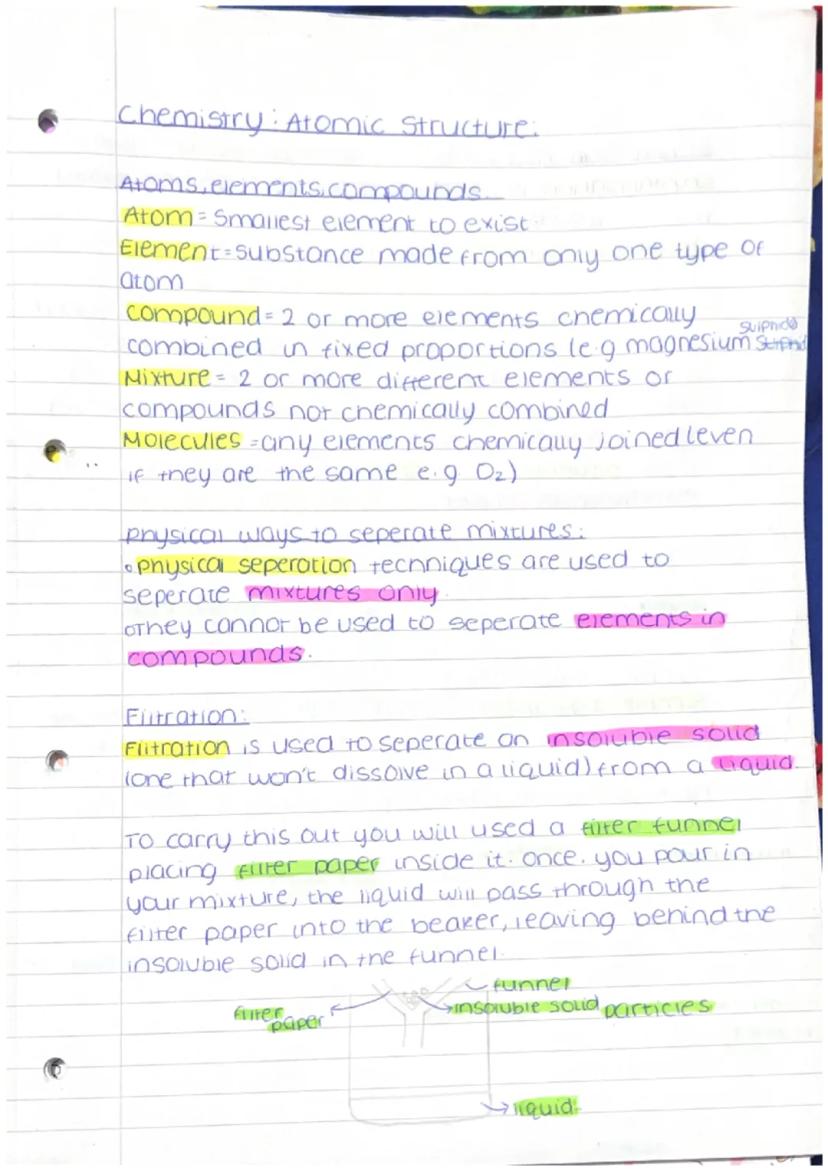 Chemistry: Atomic Structure:
Atoms, elements, compounds.
Atom = Smallest element to exist
Element = substance made from only one type of
atom
Compound = 2 or more elements chemically
sulphide
combined in fixed proportions (e.g magnesium
Mixture = 2 or more different elements or
compounds not chemically combined
Molecules = any elements chemically joined (even
if they are the same e.g O₂)
physical ways to seperate mixtures:
• physical seperation techniques are used to
seperate mixtures only
• They cannot be used to seperate elements in
compounds.
Filtration:
Filtration is used to seperate an insoluble solid
(one that won't dissolve in a liquid) from a liquid.
To carry this out you will used a filter funnel
placing filter paper inside it. once. you pour in
your mixture, the liquid will pass through the
filter paper into the beaker, leaving behind the
insoluble solid in the funnel.
funnel
insoluble solid particles
filter
paper
liquid